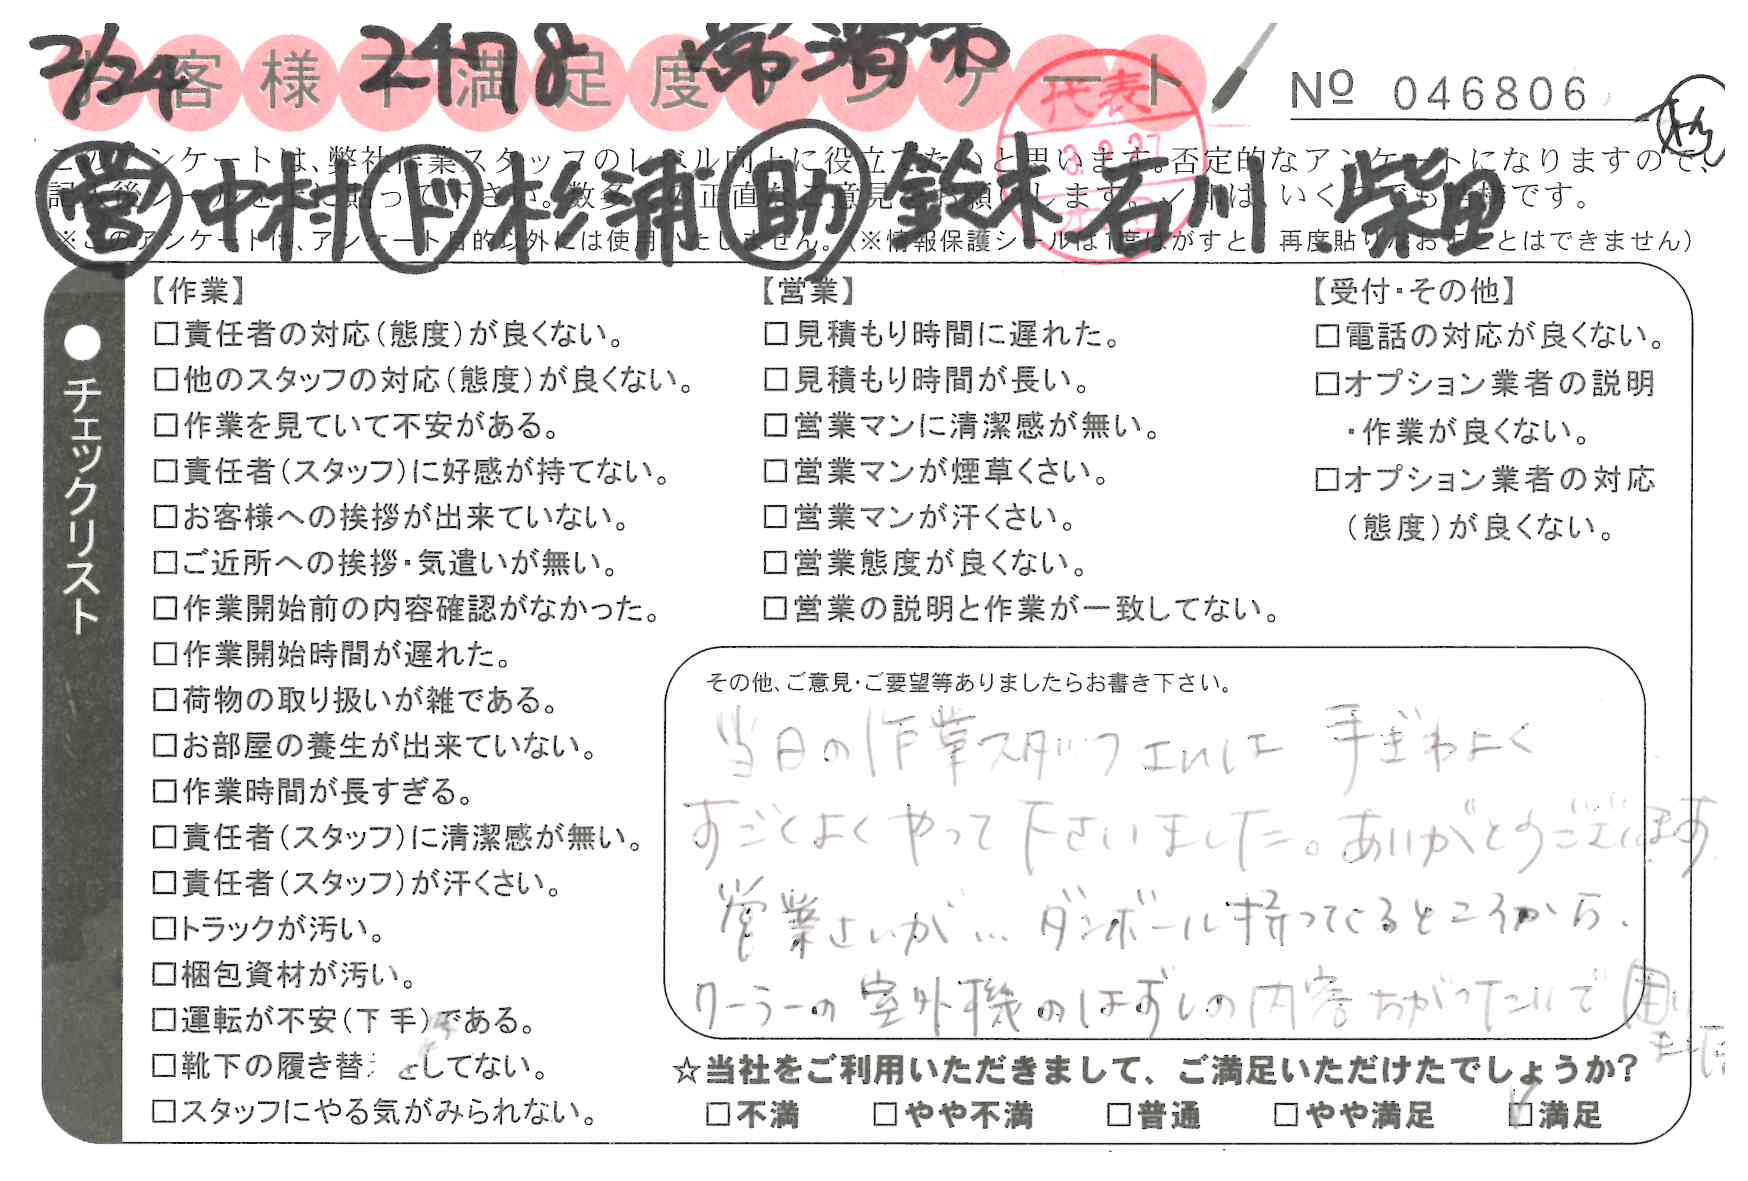 2/24 24778 常滑市
お客様不満足度アンケート
№ 046806
代表
3.2.27
このアンケートは、弊社作業スタッフのレベル向上に役立てたいと思います。否定的なアンケートになりますので、
営 中村 ド 杉浦 助 鈴木 石川 柴田
※このアンケートは、アンケート目的以外には使用いたしません。（※情報保護シールは1度はがすと、再度貼りなおすことはできません）
●チェックリスト
【作業】
□責任者の対応（態度）が良くない。
□他のスタッフの対応（態度）が良くない。
□作業を見ていて不安がある。
□責任者（スタッフ）に好感が持てない。
□お客様への挨拶が出来ていない。
□ご近所への挨拶・気遣いが無い。
□作業開始前の内容確認がなかった。
□作業開始時間が遅れた。
□荷物の取り扱いが雑である。
□お部屋の養生が出来ていない。
□作業時間が長すぎる。
□責任者（スタッフ）に清潔感が無い。
□責任者（スタッフ）が汗くさい。
□トラックが汚い。
□梱包資材が汚い。
□運転が不安（下手）である。
□靴下の履き替えをしてない。
□スタッフにやる気がみられない。
【営業】
□見積もり時間に遅れた。
□見積もり時間が長い。
□営業マンに清潔感が無い。
□営業マンが煙草くさい。
□営業マンが汗くさい。
□営業態度が良くない。
□営業の説明と作業が一致してない。
【受付・その他】
□電話の対応が良くない。
□オプション業者の説明
・作業が良くない。
□オプション業者の対応
（態度）が良くない。
その他、ご意見・ご要望等ありましたらお書き下さい。
当日の作業スタッフさんは 手ぎわよく
すごくよくやって下さいました。ありがとうございます
営業さんが… ダンボール持ってくるところから、
クーラーの室外機のはずしの内容ちがったので困り
ました
☆当社をご利用いただきまして、ご満足いただけたでしょうか？
□不満 □やや不満 □普通 □やや満足 ☑満足